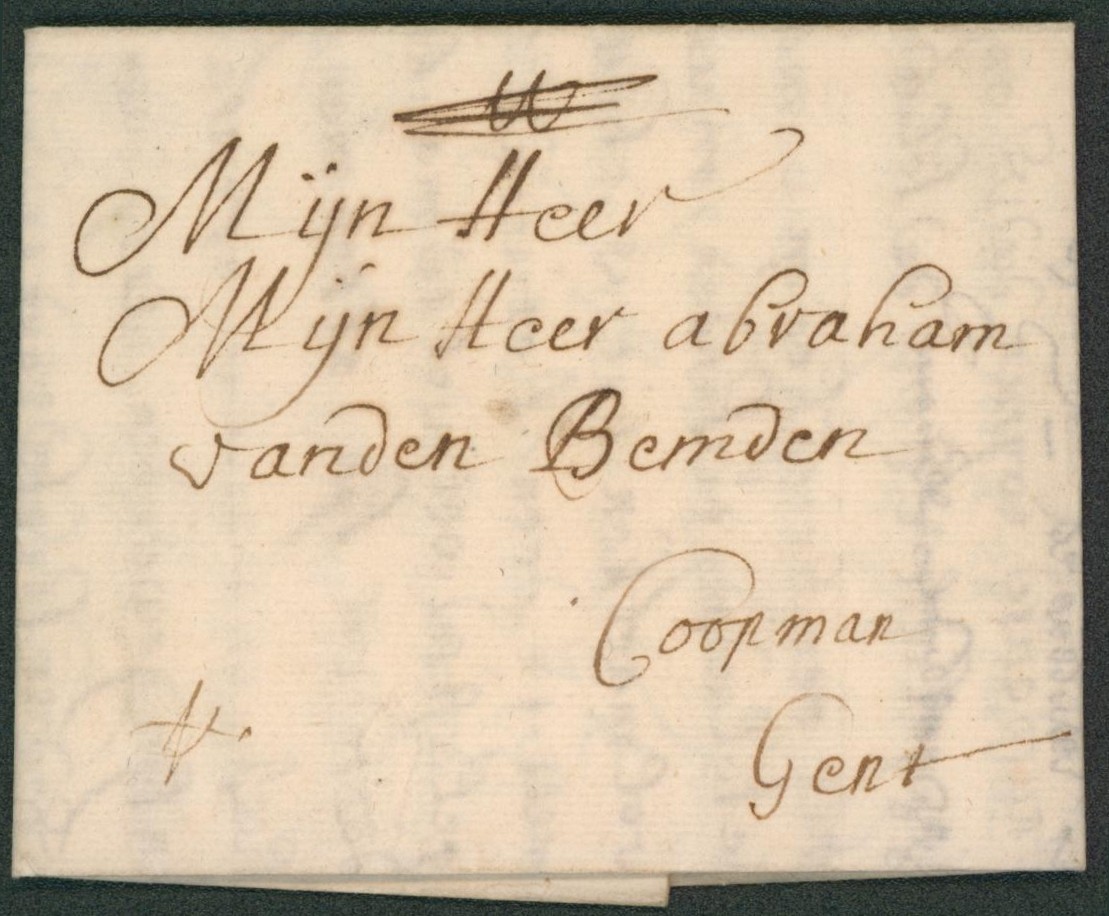 Mijn Heer
Mijn Heer abraham
vanden Bemden
Coopman
Gent